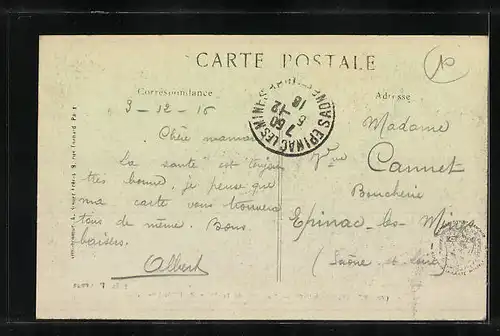 CARTE POSTALE
Correspondance
Adresse
3-12-16
Chère maman
La santé est toujours
très bonne. je pense que
ma carte vous trouvera
tous de même. Bons
baisers.
Albert
Madame
Vve Cannet
Boucherie
Epinac-les-Mines
(Saône-et-Loire)
EPINAC-LES-MINES SAONE